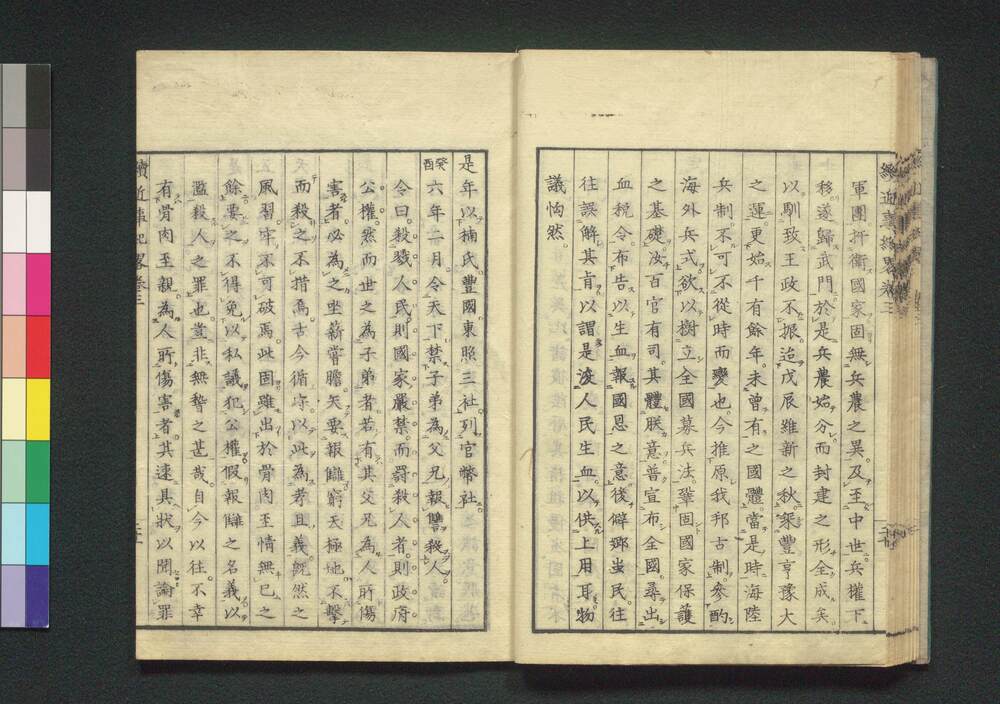 軍團扞衛國家固無兵農之異及至中世兵權下
移遂歸武門於是兵農始分而封建之形全成矣
以馴致王政不振迨戊辰維新之秋豐亨豫大
之運更始千有餘年未曾有之國體當是時海陸
兵制不可不從時而變也今推原我邦古制參酌
海外兵式欲以樹立全國募兵法鞏固國家保護
之基礎汝百官有司其體朕意普宣布全國尋出
血稅令布告以生血報國恩之意後僻鄉蚩民往
往誤解其旨以謂是浚人民生血以供上用耳物
議恟然
是年以楠氏豐國東照三社列官幣社
癸酉六年二月令天下禁子弟為父兄報讐殺人
令曰殺戮人民則國家嚴禁而罰殺人者則政府
公權然而世之為子弟者若有其父兄為人所傷
害者必為之坐薪嘗膽矢要報讎窮天極地不擊
而殺之不措焉古今循守以此為孝且義既然之
風習牢不可破焉此固雖出於骨肉至情無已之
餘要之不得免以私議犯公權假報讎之名義以
濫殺人之罪也豈非無謷之甚哉自今以往不幸
有骨肉至親為人所傷害者其速具狀以聞論罪
續近事紀畧卷三